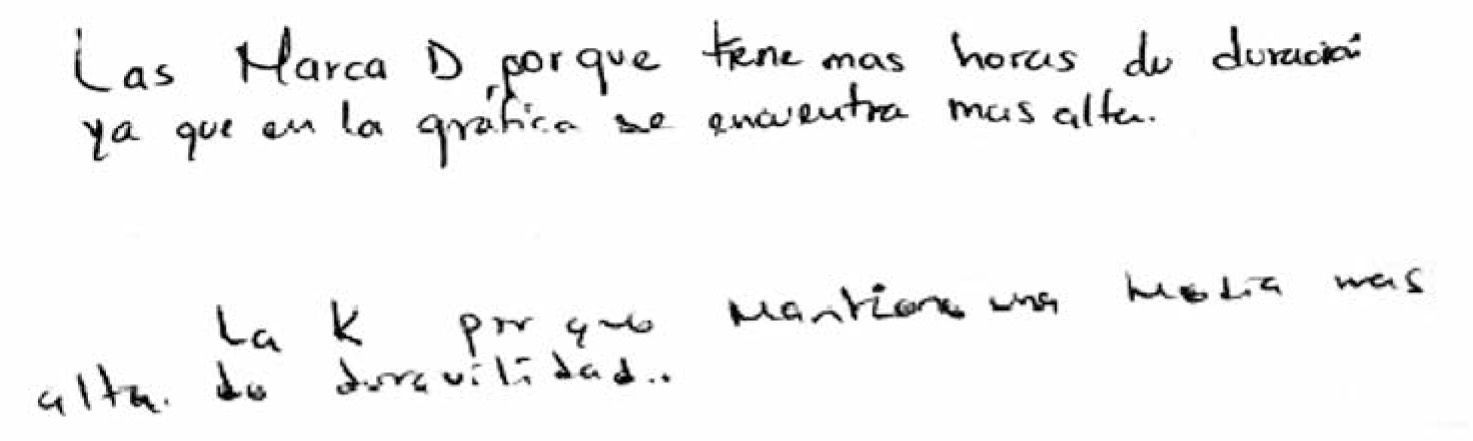 Las Marca D, porque tiene mas horas de duración
ya que en la gráfica se encuentra mas alta.
La K por que mantiene una media mas
alta. de duravilidad..